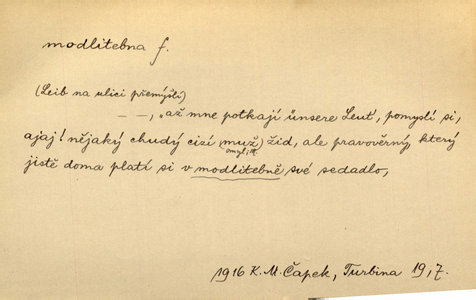 modlitebna f.
(Leib na ulici přemýšlí)
— —, "až mne potkají ünsere Leut', pomyslí si,
ajaj! nějaký chudý cizí (muž) žid, ale pravověrný, který
omyl;
jistě doma platí si v modlitebně své sedadlo,
1916 K. M. Čapek, Turbina 19,7.